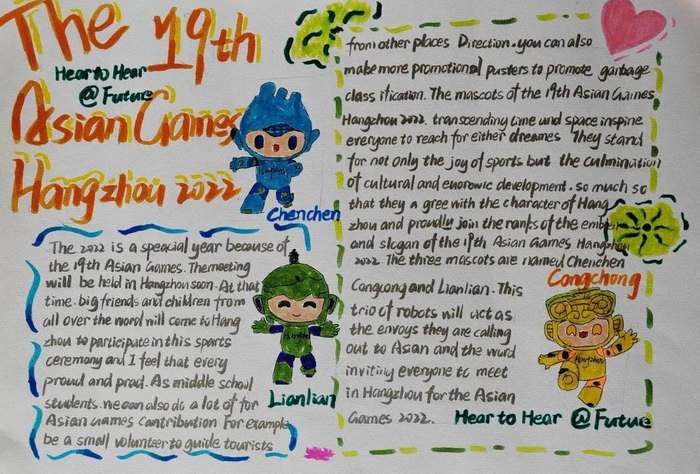 The 19th
Hear to Hear
@ Future
Asian Games
Hangzhou 2022
Chenchen
The 2022 is a speacial year because of
the 19th Asian Games. The meeting
will be held in Hangzhou soon. At that
time. big friends and children from
all over the word will come to Hang
zhou to participate in this sports
ceremony and I feel that every
proud and prad. As middle school
students. we can also do a lot of for
Asian Games contribution For example
be a small volunteer to guide tourists
Lianlian
from other places Direction. you can also
make more promotional pusters to promote garbage
class ification. The mascots of the 19th Asian Games
Hangzhou 2022. transcending time und space inspine
everyone to reach for either dreames They stand
for not only the joy of sports but the culmination
of cultural and enorowic development. so much so
that they a gree with the character of Hang
zhou and proudly join the ranks of the emblem
and slogan of the 19th Asian Games Hangzhou
2022 The three mascots are named Chenchen
Congcong and Lianlian. This
trio of robots will act as
the envoys they are calling
out to Asian and the word
inviting everyone to meet
in Hangzhou for the Asian
Games 2022.
Congchong
Hear to Hear @ Future